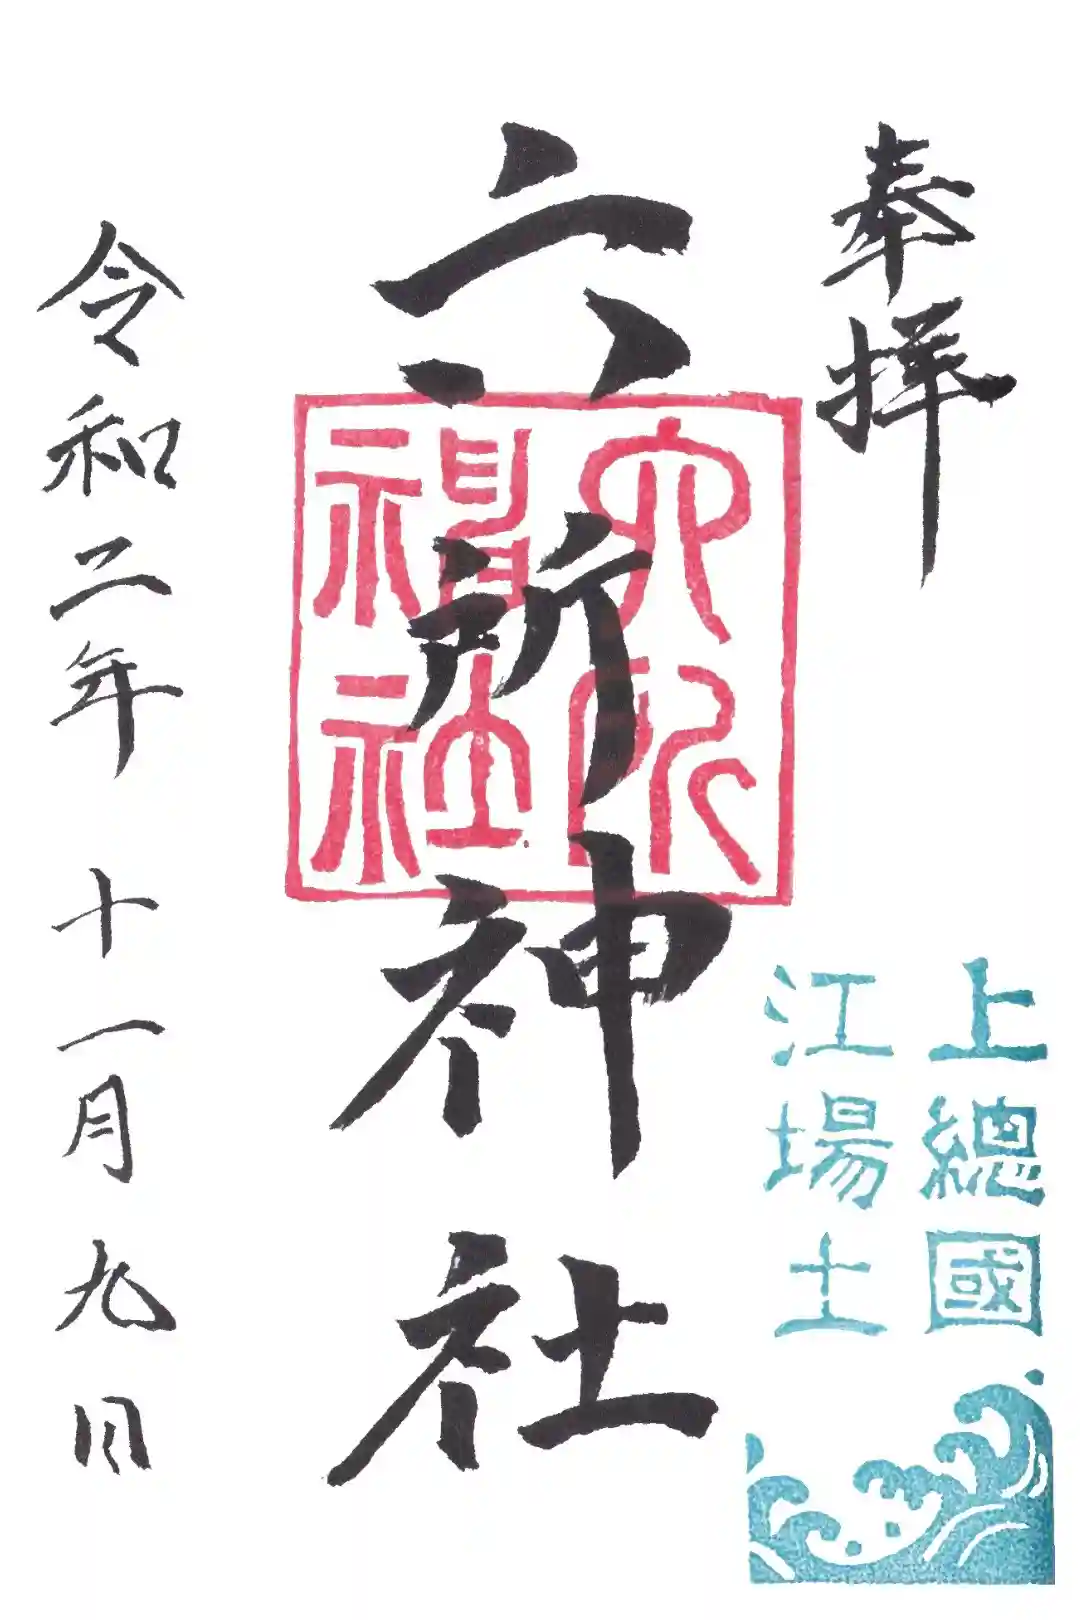 奉拝
上總國
江場土
六所神社
六所神社
令和二年 十一月九日